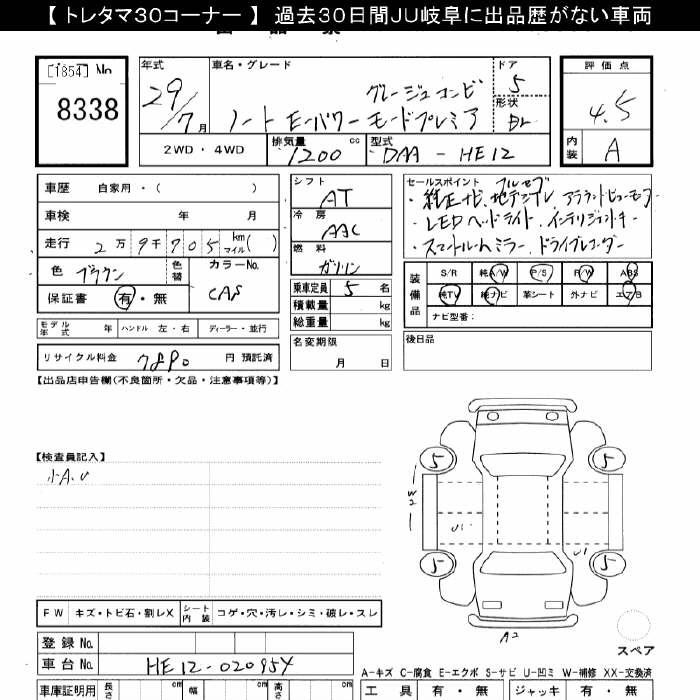 【 トレタマ30コーナー 】 過去30日間JU岐阜に出品歴がない車両
[1854] No
8338
年式 29/7月
車名・グレード グレージュコンビ
ノート E-パワー モードプレミア
ドア 5
形状 BL
評価点 4.5
内装 A
2WD・4WD
排気量 1200 cc
型式 DAA - HE12
車歴 自家用・( )
車検 年 月
走行 2万9千705 km マイル( )
色 ブラウン 色替
カラーNo. CAS
保証書 有・無
モデル年式 年 ハンドル 左・右 ディーラー・並行
リサイクル料金 7890 円 預託済
シフト AT
冷房 AAC
燃料 ガソリン
乗車定員 5 名
積載量 kg
総重量 kg
名変期限 月 日
セールスポイント フルセグ
・純正ナビ、地デジTV、アラウンドビューモニター
・LEDヘッドライト、インテリジェントキー
・スマートルームミラー、ドライブレコーダー
装備品 S/R 純A/W P/S P/W ABS
純TV 純ナビ 革シート 外ナビ エアB
ナビ型番:
後日品
【出品店申告欄(不良箇所・欠品・注意事項等)】
【検査員記入】
小A.U
5 5
W2
U1 U1
5 5
A2
スペア
FW キズ・トビ石・割レX シート内装 コゲ・穴・汚レ・シミ・破レ・スレ
登録 No.
車台 No. HE12-020954
A-キズ C-腐食 E-エクボ S-サビ U-凹ミ W-補修 XX-交換済
車庫証明用 長さ cm 幅 cm 高さ cm
工具 有・無 ジャッキ 有・無